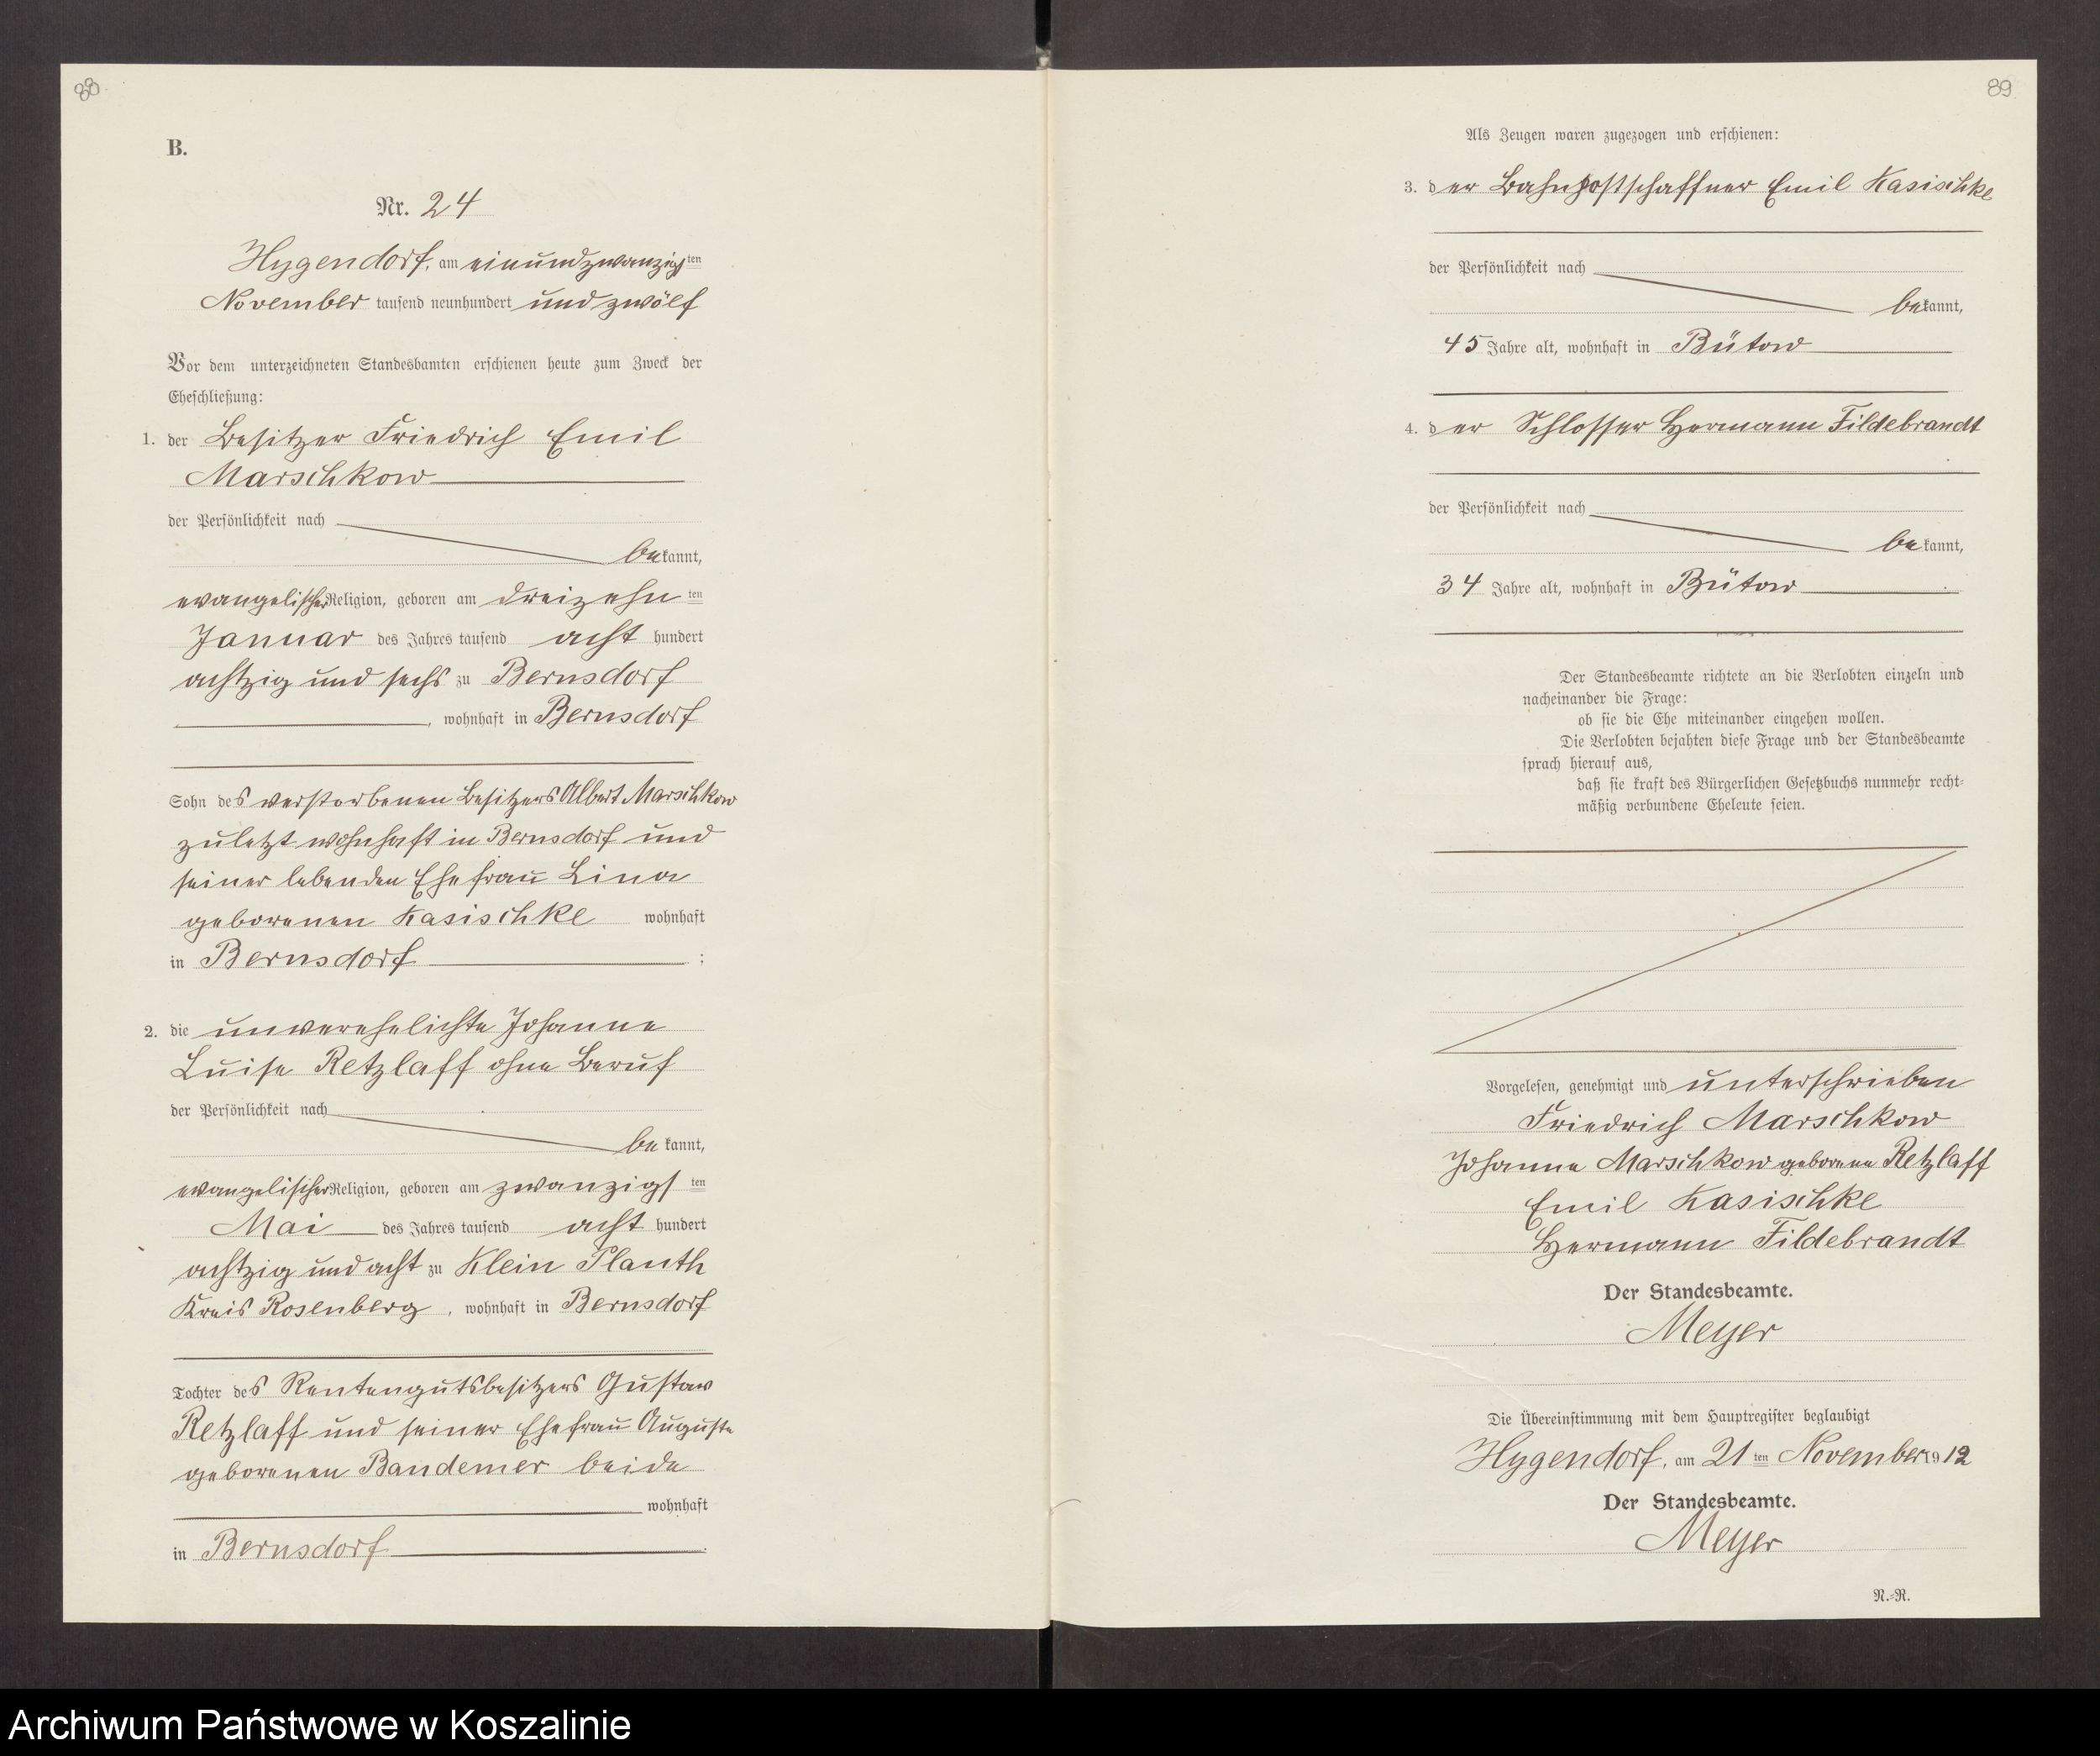 88
B.
Nr. 24
Hygendorf, am einundzwanzigsten
November tausend neunhundert und zwölf
Vor dem unterzeichneten Standesbamten erschienen heute zum Zweck der
Eheschließung:
1. der Besitzer Friedrich Emil
Marschkow
der Persönlichkeit nach
bekannt,
evangelischer Religion, geboren am dreizehn ten
Januar des Jahres tausend acht hundert
achtzig und sechs zu Bernsdorf
, wohnhaft in Bernsdorf
Sohn des verstorbenen Besitzers Albert Marschkow
zuletzt wohnhaft in Bernsdorf und
seiner lebenden Ehefrau Lina
geborenen Kasischke wohnhaft
in Bernsdorf :
2. die unverehelichte Johanne
Luise Retzlaff ohne Beruf
der Persönlichkeit nach
bekannt,
evangelischer Religion, geboren am zwanzigs ten
Mai des Jahres tausend acht hundert
achtzig und acht zu Klein Plauth
Kreis Rosenberg, wohnhaft in Bernsdorf
Tochter des Rentengutsbesitzers Gustav
Retzlaff und seiner Ehefrau Auguste
geborenen Bandemer beide
wohnhaft
in Bernsdorf .
89
Als Zeugen waren zugezogen und erschienen:
3. der Bahnpostschaffner Emil Kasischke
der Persönlichkeit nach
bekannt,
45 Jahre alt, wohnhaft in Bütow
4. der Schlosser Hermann Fildebrandt
der Persönlichkeit nach
bekannt,
34 Jahre alt, wohnhaft in Bütow .
Der Standesbeamte richtete an die Verlobten einzeln und
nacheinander die Frage:
ob sie die Ehe miteinander eingehen wollen.
Die Verlobten bejahten diese Frage und der Standesbeamte
sprach hierauf aus,
daß sie kraft des Bürgerlichen Gesetzbuchs nunmehr recht-
mäßig verbundene Eheleute seien.
Vorgelesen, genehmigt und unterschrieben
Friedrich Marschkow
Johanne Marschkow geborene Retzlaff
Emil Kasischke
Hermann Fildebrandt
Der Standesbeamte.
Meyer
Die Übereinstimmung mit dem Hauptregister beglaubigt
Hygendorf, am 21 ten November 1912
Der Standesbeamte.
Meyer
N.-R.
Archiwum Państwowe w Koszalinie